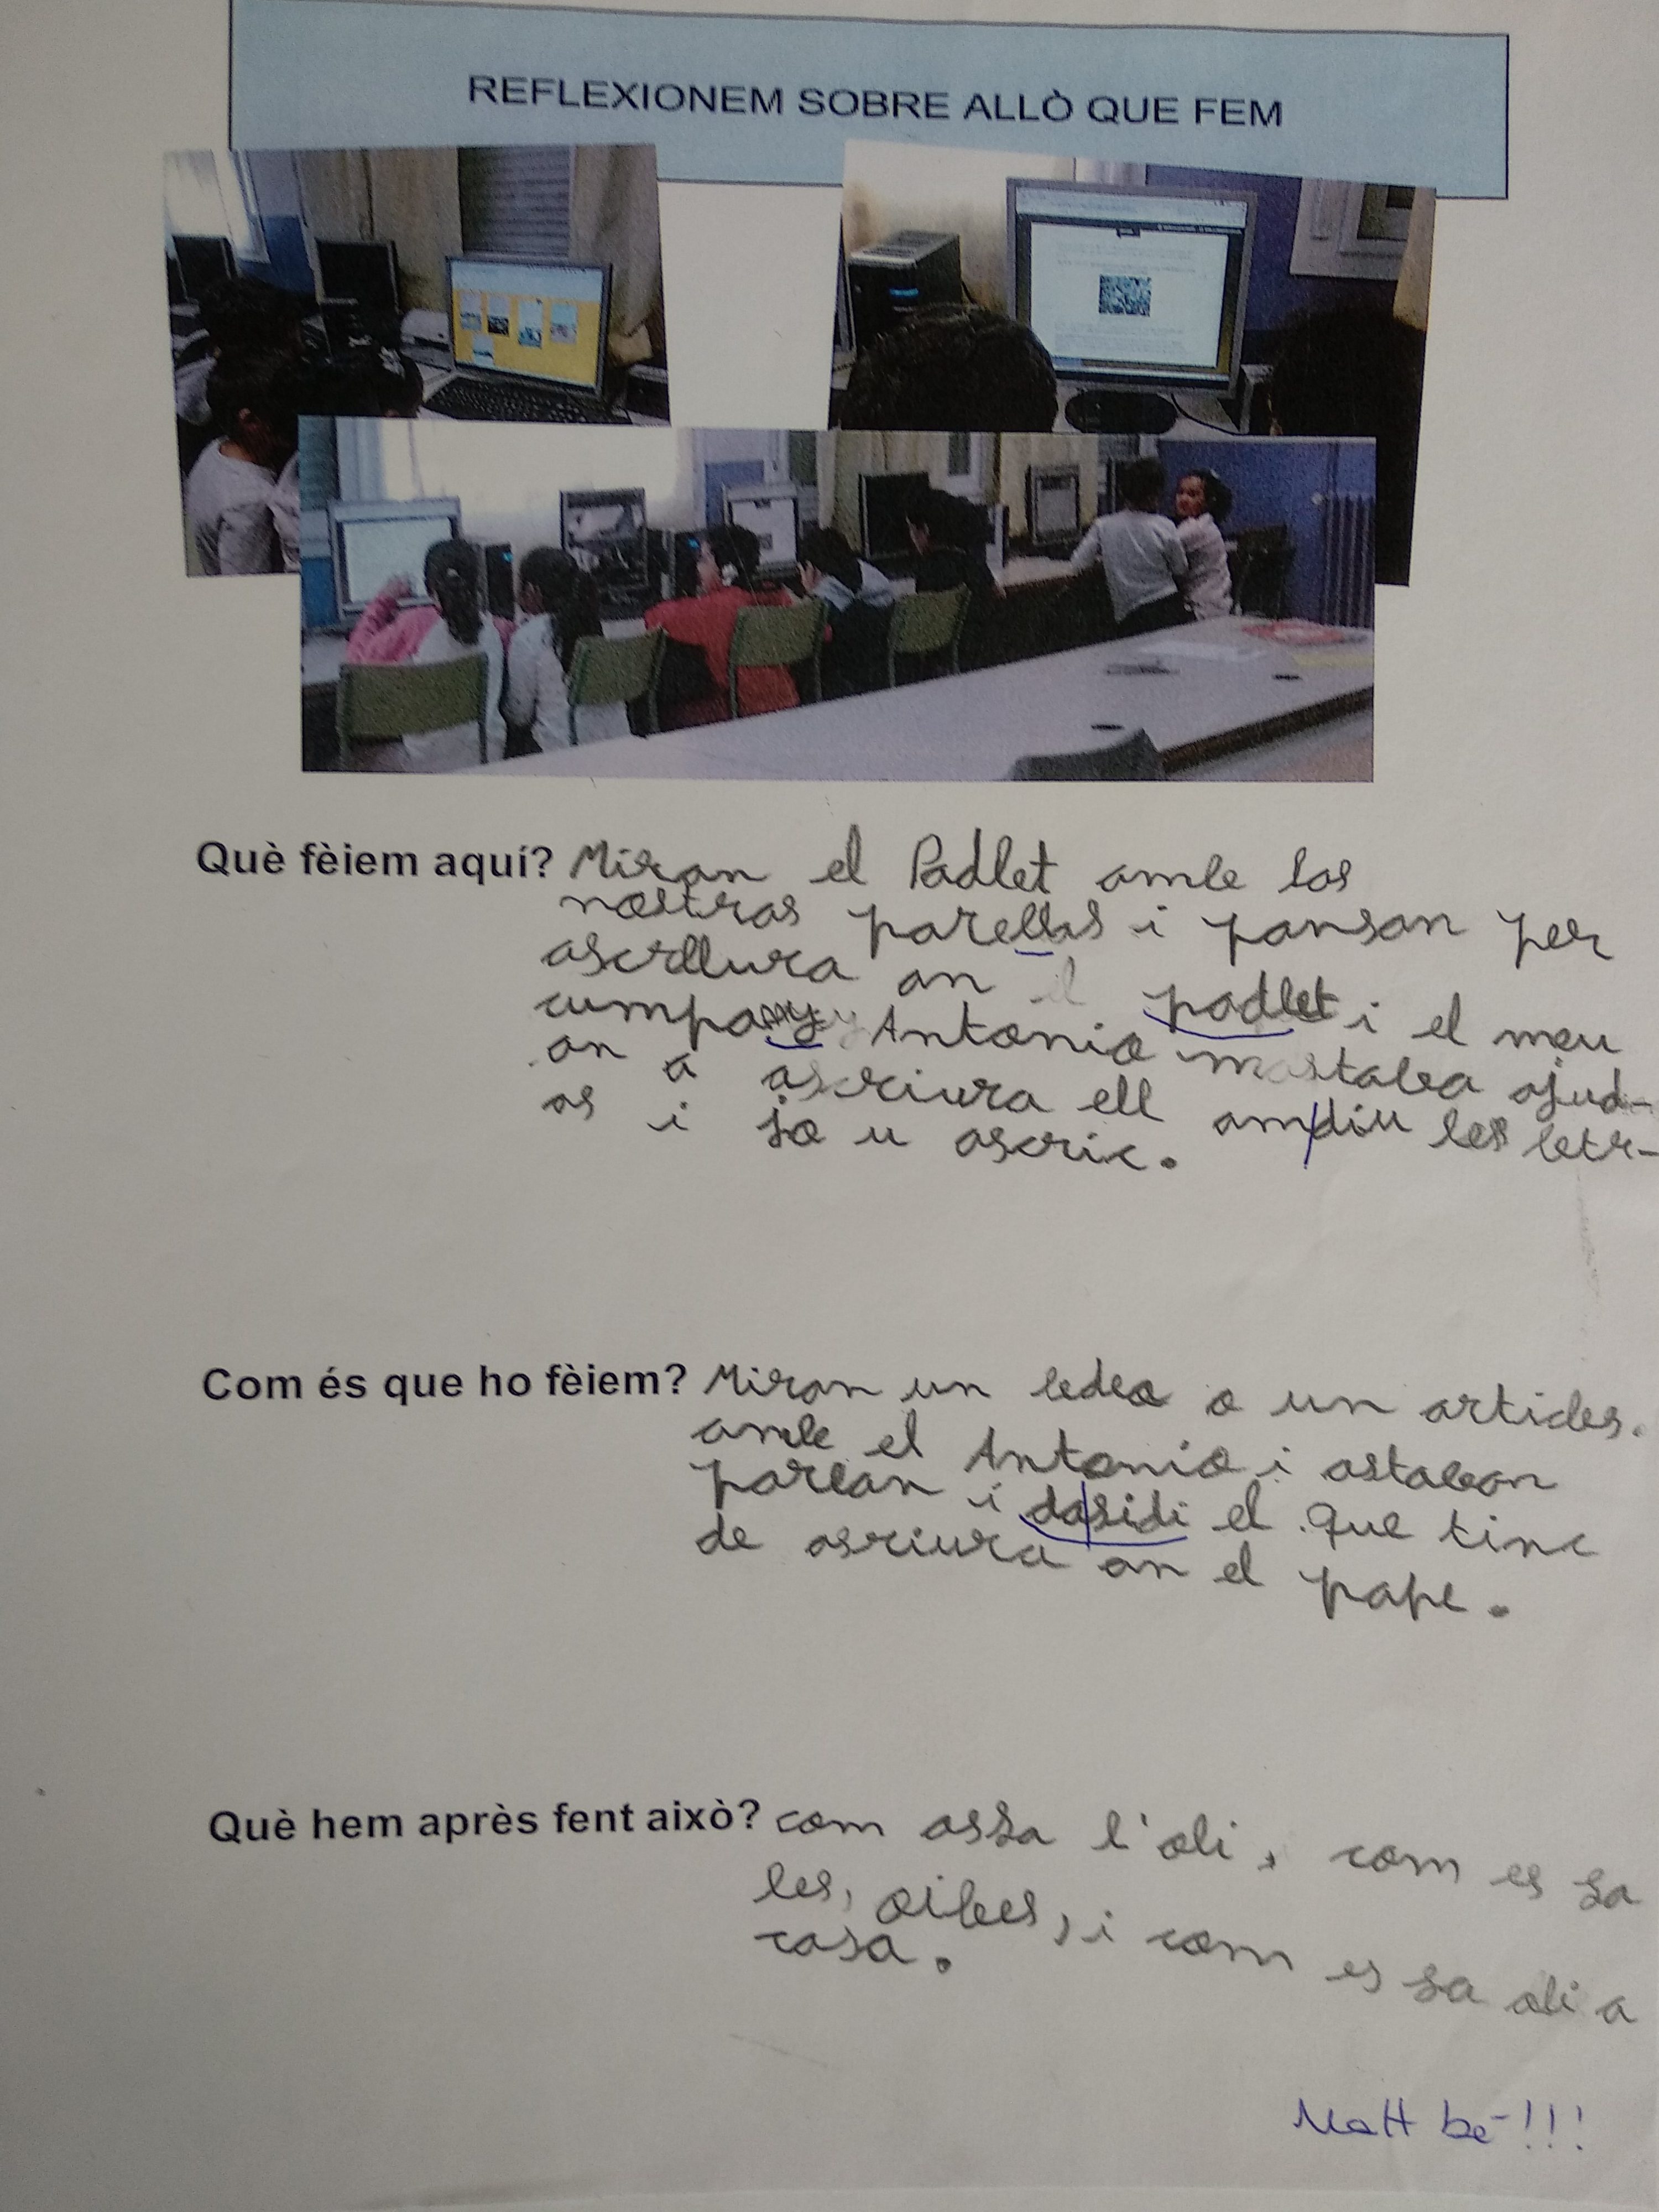 REFLEXIONEM SOBRE ALLÒ QUE FEM
Què fèiem aquí? Miran el Padlet amb las
nostras parellas i pansan per
ascriura an el padlet i el meu
cumpany Antonio mastaba ajud-
an a ascriura ell amdiu les letr-
as i jo u ascric.
Com és que ho fèiem? Miran un bedeo o un articles.
amb el Antonio i astaban
parlan i dasidi el que tinc
de asriura an el pape.
Què hem après fent això? com assa l'oli, com es sa
les, oibes, i com es sa oli a
casa.
Molt bé!!!